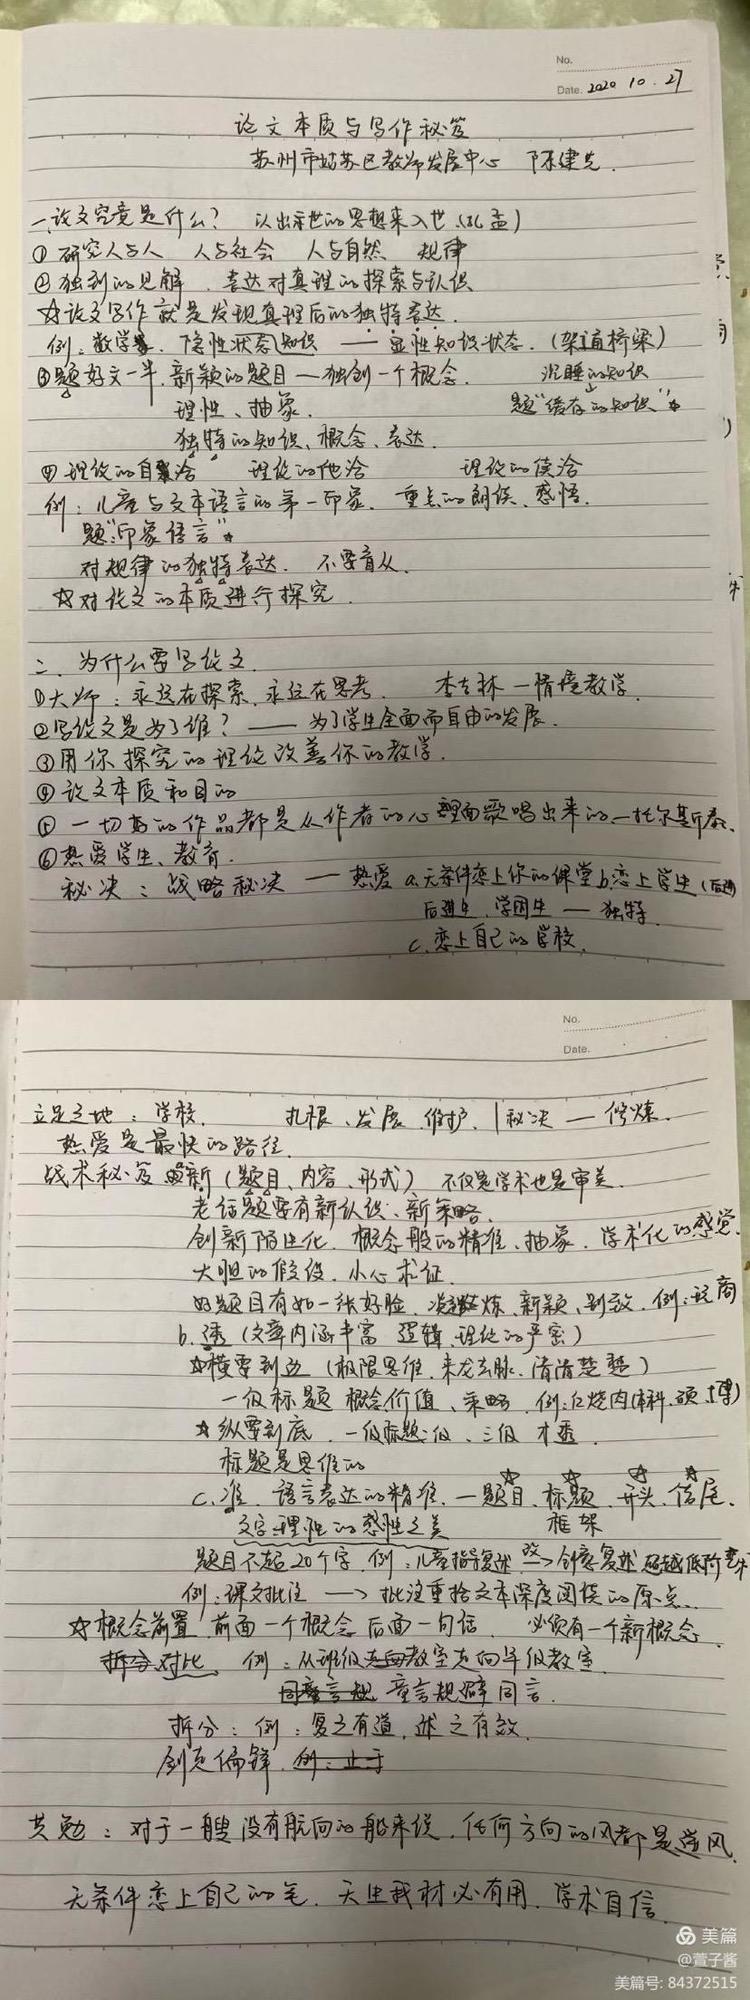 No.
Date. 2020 10. 27
论文本质与写作秘笈
苏州市姑苏区教师发展中心 陈建先.
一、论文究竟是什么? 以出世的思想来入世.(孔孟)
① 研究人与人 人与社会 人与自然 规律
② 独到的见解. 表达对真理的探索与认识
☆论文写作就是发现真理后的独特表达.
例:数学 隐性状态知识 —— 显性知识状态.(架通桥梁)
③题好文一半.新颖的题目—独创一个概念. 沉睡的知识
理性、抽象. 题"缓存的知识"☆
独特的知识、概念、表达.
④ 理论的自洽 理论的他洽 理论的续洽
例:儿童与文本语言的第一印象. 重点的朗读、感悟.
题:"印象语言"☆
对规律的独特表达. 不要盲从.
☆对论文的本质进行探究.
二. 为什么要写论文.
①大师:永远在探索、永远在思考. 李吉林—情境教学.
②写论文是为了谁? —— 为了学生全面而自由的发展.
③用你探究的理论改善你的教学.
④ 论文本质和目的
⑤ 一切好的作品都是从作者的心里面歌唱出来的.—托尔斯泰.
⑥热爱学生、教育.
秘决:战略秘决 — 热爱 a.无条件恋上你的课堂 b.恋上学生(后进
后进生、学困生 — 独特.
c.恋上自己的学校.
No.
Date.
立足之地:学校. 扎根、发展、维护. 秘决 — 修炼.
热爱是最快的路径.
战术秘笈 新(题目、内容、形式) 不仅是学术也是审美.
老话题要有新认识、新策略.
创新陌生化. 概念般的精准、抽象. 学术化的感觉.
大胆的假设.小心求证.
好题目有如一张好脸. 凝炼、新颖、别致. 例:玩商
b.透(文章内涵丰富 逻辑、理论的严密)
☆横要到边 (极限思维.来龙去脉.清清楚楚)
一级标题 概念价值、策略. 例:红烧肉本科.硕.博)
☆纵要到底. 一级标题二级、三级 才透.
标题是思维的
c.准. 语言表达的精准. —题目、标题、开头、结尾.
文字理性的感性之美 框架
题目不超20个字.例:儿童指导复述 改→创意复述 超越低阶
例:课文批注 —→ 批注重拾文本深度阅读的原点.
☆概念前置 前面一个概念 后面一句话. 必须有一个新概念.
拆分对比. 例:从班级教室走向年级教室.
童言规避同言.
拆分:例:复之有道,述之有效.
剑走偏锋.例:止于
共勉:对于一艘没有航向的船来说,任何方向的风都是逆风.
无条件恋上自己的笔.天生我材必有用.学术自信.
美篇
@萱子酱
美篇号: 84372515